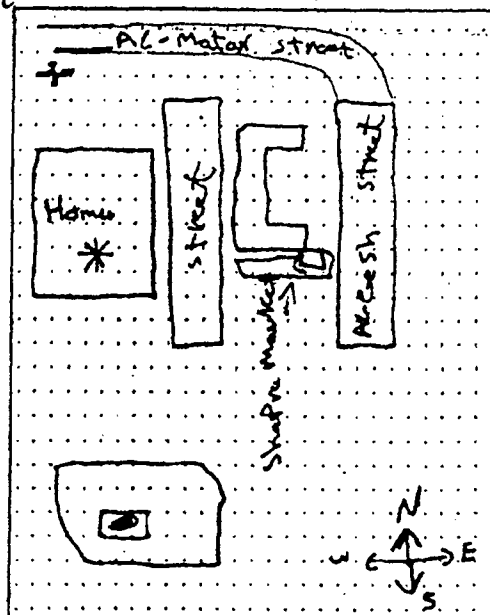 Al-Matar street
Home
street
Al-Cesh street
Shapre market
N
W
E
S